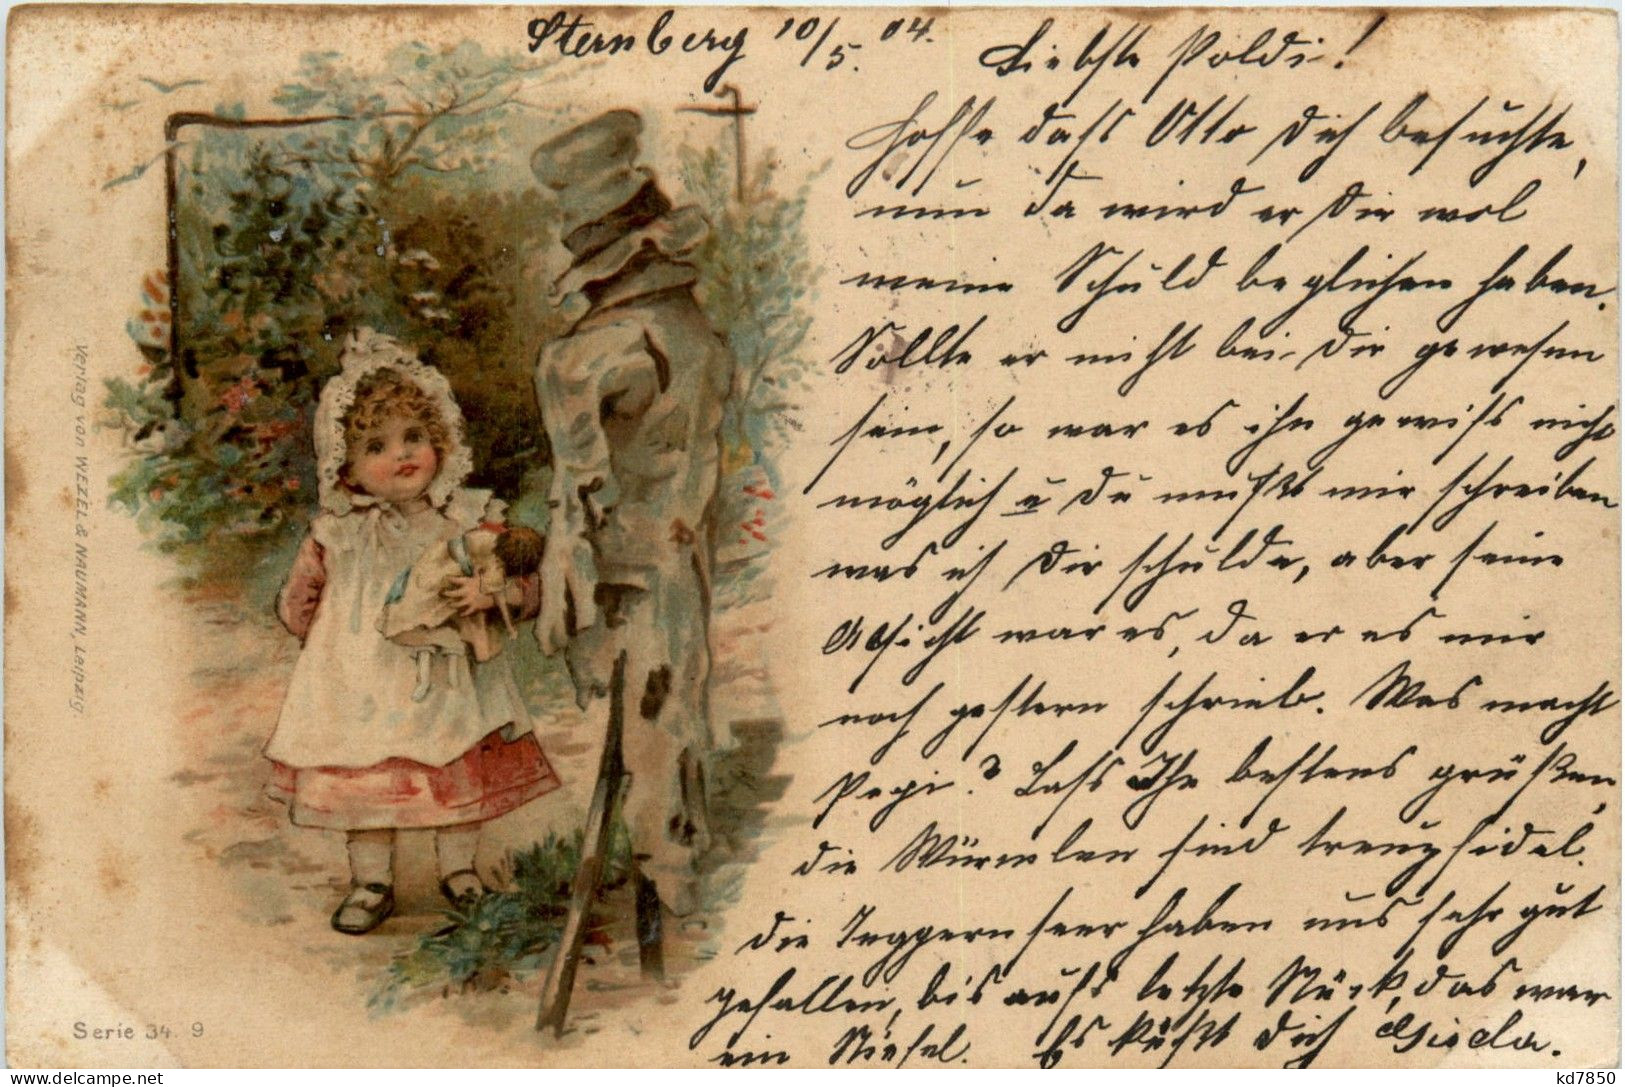 Sternberg 10/5. 04.
Liebste Poldi!
Hoffe dass Otto Dich besuchte,
nun da wird er Dir wol
meine Schuld beglichen haben.
Sollte er nicht bei Dir gewesen
sein, so war es ihm gewiss nicht
möglich u Du musst mir schreiben
was ich Dir schulde, aber seine
Absicht war es, da er es mir
noch gestern schrieb. Was macht
Pepi? Lass Ihn bestens grüßen,
die Würmlen sind kreuzfidel.
Die Teggernseer haben uns sehr gut
gefallen, bis aufs letzte Stück, das war
ein Stiefel. Es küsst Dich Gisela.
Verlag von WEZEL & NAUMANN, Leipzig
Serie 34. 9
kd7850